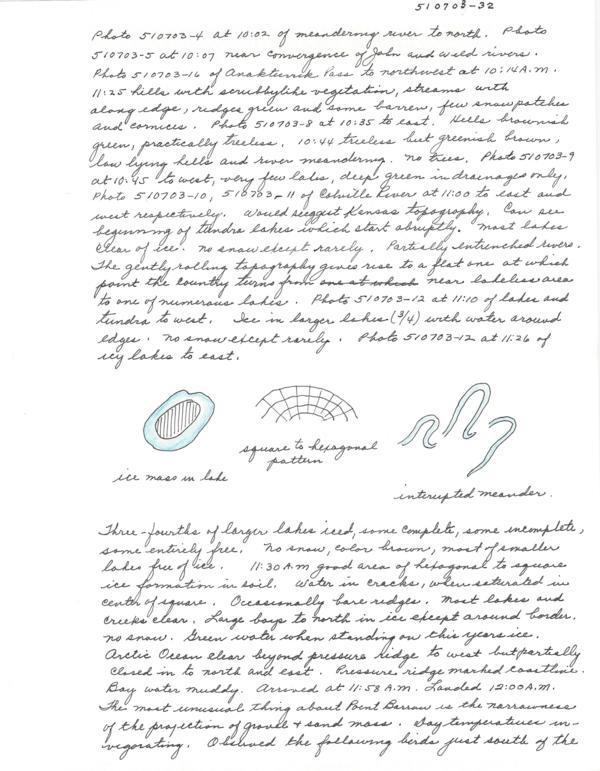 510703-32
Photo 510703-4 at 10:02 of meandering river to north. Photo
510703-5 at 10:07 near convergence of John and Wild rivers.
Photo 510703-16 of Anaktuvuk Pass to northwest at 10:14 A.M.
11:25 hills with scrubbylike vegetation, streams with
along edge, ridges green and some barren, few snow patches
and cornices. Photo 510703-8 at 10:35 to east. Hells brownish
green, practically treeless. 10:44 treeless but greenish brown,
low lying hells and river meandering. no trees. Photo 510703-9
at 10:45 to west, very few lakes, deep green in drainages only.
Photo 510703-10, 510703-11 of Colville River at 11:00 to east and
west respectively. Would suggest Kansas topography. Can see
beginning of tundra lakes which start abruptly. Most lakes
clear of ice. no snow except rarely. Partially entrenched rivers.
The gently rolling topography gives rise to a flat one at which
point the country turns from one at which near lakeless area
to one of numerous lakes. Photo 510703-12 at 11:10 of lakes and
tundra to west. Ice in larger lakes (3/4) with water around
edges. no snow except rarely. Photo 510703-12 at 11:26 of
icy lakes to east.
ice mass in lake
square to hexagonal
pattern
interupted meander.
Three-fourths of larger lakes iced, some complete, some incomplete,
some entirely free. No snow, color brown, most of smaller
lakes free of ice. 11:30 A.M good area of hexagonal to square
ice formation in soil. Water in cracks, when saturated in
center of square. Occasionally bare ridges. Most lakes and
creeks clear. Large bays to north in ice except around border.
no snow. Green water when standing on this years ice.
Arctic Ocean clear beyond pressure ridge to west but partially
closed in to north and east. Pressure ridge marked coastline.
Bay water muddy. Arrived at 11:58 A.M. Landed 12:00 A.M.
The most unusual thing about Point Barrow is the narrowness
of the projection of gravel + sand mass. Day temperatures in-
vigorating. Observed the following birds just south of the